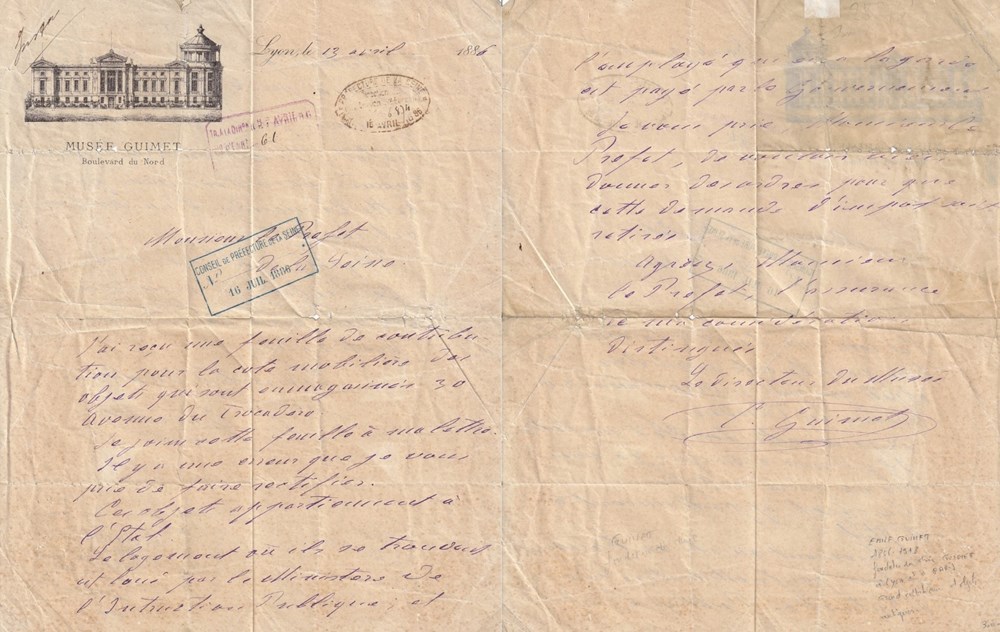 Lyon, le 13 avril 1886
MUSÉE GUIMET
Boulevard du Nord
61
Monsieur le Préfet
de la Seine
CONSEIL DE PRÉFECTURE DE LA SEINE
No
16 JUIL 1886
J'ai reçu une feuille de contribu
tion pour la cote mobilière des
objets qui sont emmagasinés 30
Avenue du Trocadéro
Je joins cette feuille à ma lettre.
Il y a une erreur que je vous
prie de faire rectifier.
Ces objets appartiennent à
l'État.
Le logement où ils se trouvent
est loué par le Ministère de
l'Intruction Publique; et
l'employé qui en a la garde
est payé par le Gouvernement
Je vous prie, Monsieur le
Préfet, de vouloir bien
donner des ordres pour que
cette demande d'impôt soit
retirée
Agréez, Monsieur
le Préfet, l'assurance
de ma considération
distinguée
Le Directeur du Musée
E. Guimet